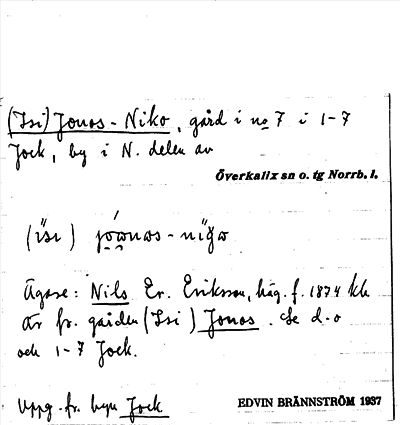 (Isi) Jonas-Niko, gård i no 7 i 1-7
Jock, by i N. delen av
Överkalix sn o. tg Norrb. l.
Ägare: Nils Er. Eriksson, häg. f. 1874 kk
är fr. gården (Isi) Jonas. Se d.o
och 1-7 Jock.
Uppg. fr. byn Jock
EDVIN BRÄNNSTRÖM 1937